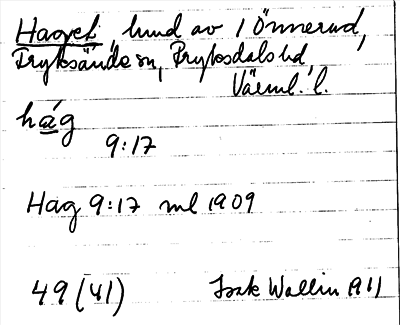 Haget, lund av 1 Önnerud,
Fryksände sn, Fryksdals hd,
Värml. l.
hág
9:17
Hag 9:17 ml 1909
49 (41)   Isak Wallin 1911